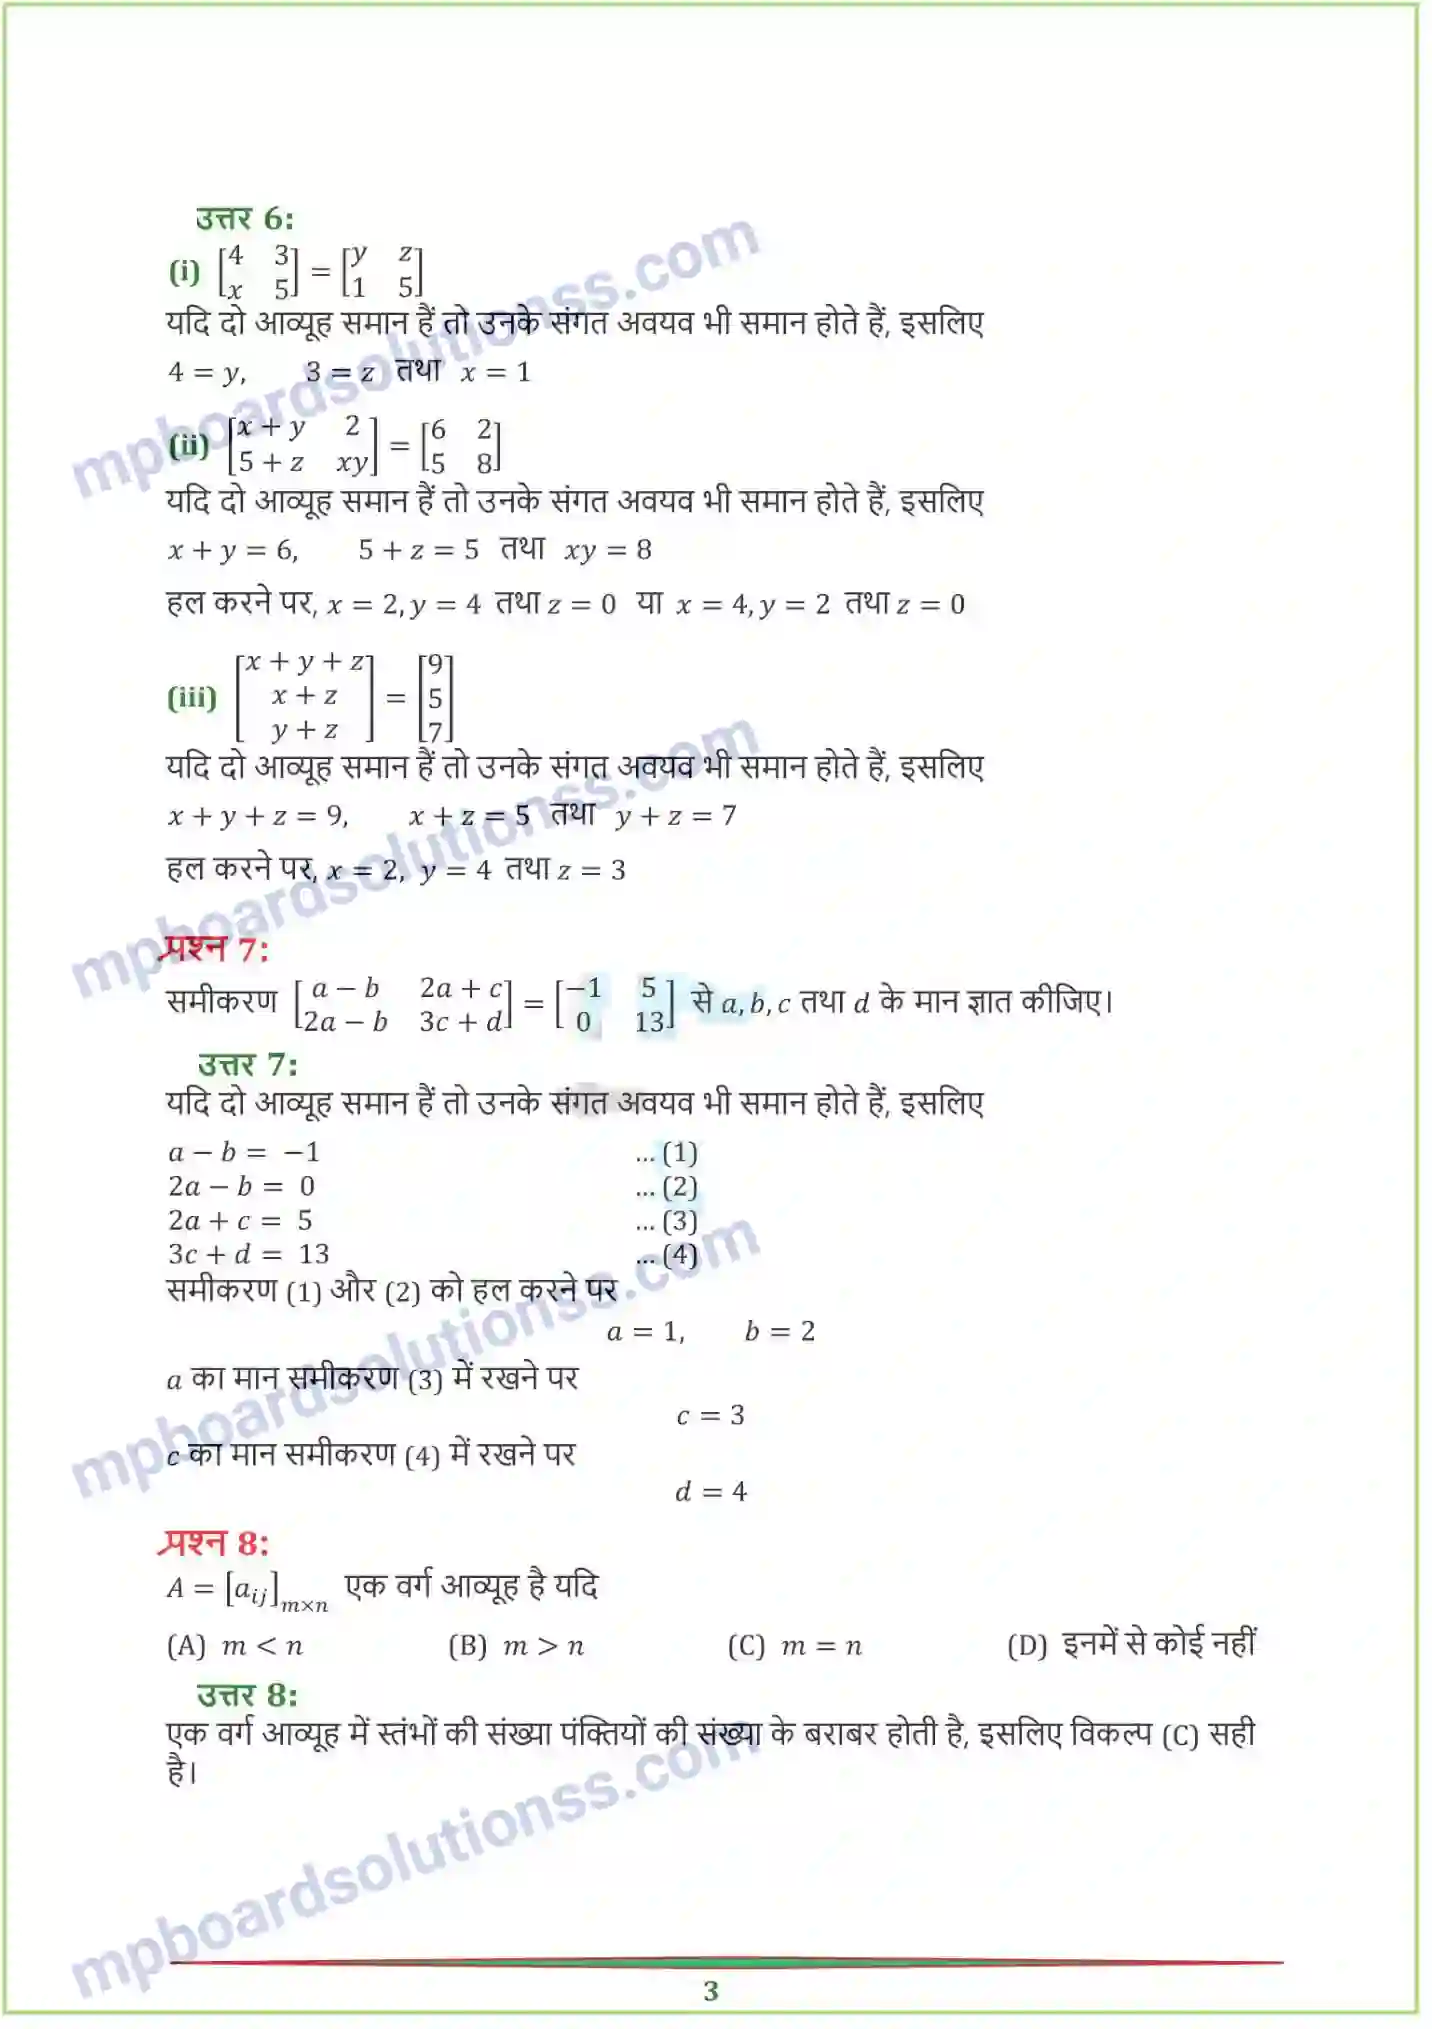 उत्तर 6:
(i) [4 3; x 5] = [y z; 1 5]
यदि दो आव्यूह समान हैं तो उनके संगत अवयव भी समान होते हैं, इसलिए
4 = y, 3 = z तथा x = 1
(ii) [x + y 2; 5 + z xy] = [6 2; 5 8]
यदि दो आव्यूह समान हैं तो उनके संगत अवयव भी समान होते हैं, इसलिए
x + y = 6, 5 + z = 5 तथा xy = 8
हल करने पर, x = 2, y = 4 तथा z = 0 या x = 4, y = 2 तथा z = 0
(iii) [x + y + z; x + z; y + z] = [9; 5; 7]
यदि दो आव्यूह समान हैं तो उनके संगत अवयव भी समान होते हैं, इसलिए
x + y + z = 9, x + z = 5 तथा y + z = 7
हल करने पर, x = 2, y = 4 तथा z = 3
प्रश्न 7:
समीकरण [a − b 2a + c; 2a − b 3c + d] = [−1 5; 0 13] से a, b, c तथा d के मान ज्ञात कीजिए।
उत्तर 7:
यदि दो आव्यूह समान हैं तो उनके संगत अवयव भी समान होते हैं, इसलिए
a − b = −1 ... (1)
2a − b = 0 ... (2)
2a + c = 5 ... (3)
3c + d = 13 ... (4)
समीकरण (1) और (2) को हल करने पर
a = 1, b = 2
a का मान समीकरण (3) में रखने पर
c = 3
c का मान समीकरण (4) में रखने पर
d = 4
प्रश्न 8:
A = [aij]m×n एक वर्ग आव्यूह है यदि
(A) m < n (B) m > n (C) m = n (D) इनमें से कोई नहीं
उत्तर 8:
एक वर्ग आव्यूह में स्तंभों की संख्या पंक्तियों की संख्या के बराबर होती है, इसलिए विकल्प (C) सही
है।
3
mpboardsolutionss.com
mpboardsolutionss.com
mpboardsolutionss.com
mpboardsolutionss.com